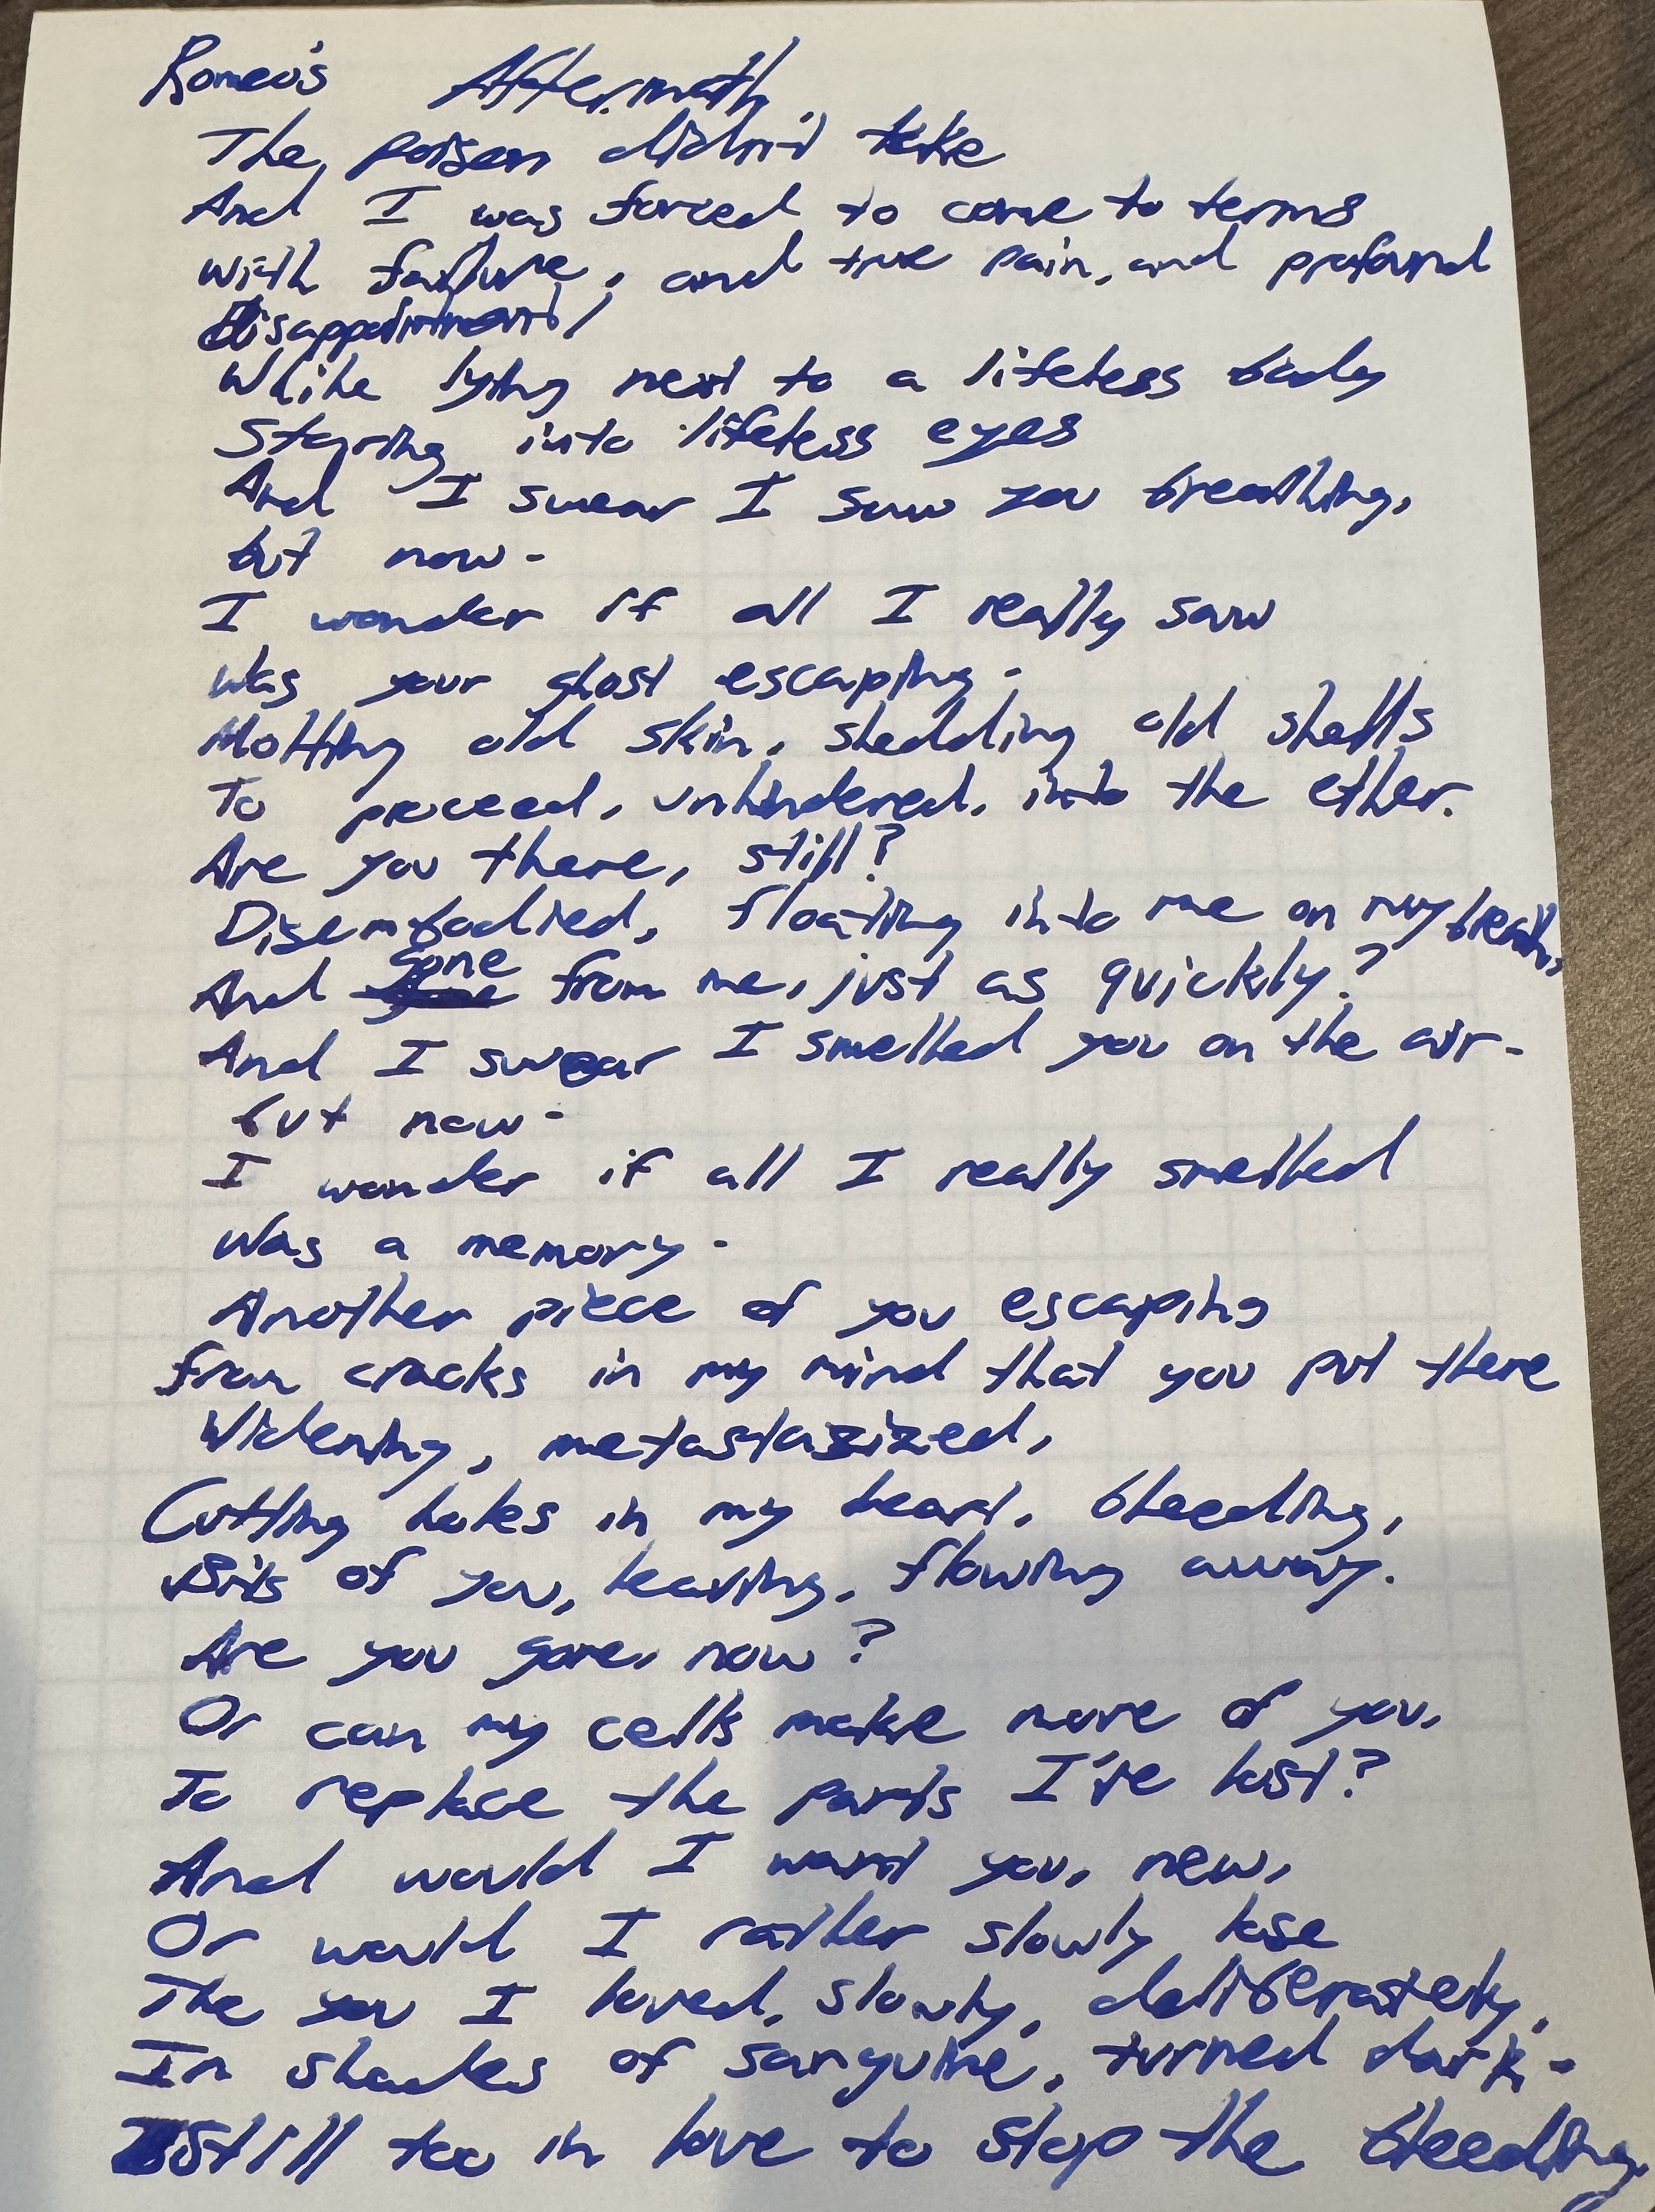 Romeo's Aftermath
The poison didn't take
And I was forced to come to terms
with failure, and true pain, and profound
disappointment,
While lying next to a lifeless body
Staring into lifeless eyes
And I swear I saw you breathing,
but now-
I wonder if all I really saw
was your ghost escaping-
Molting old skin, shedding old shells
To proceed, unhindered, into the ether.
Are you there, still?
Disembodied, floating into me on my breath,
And gone from me, just as quickly?
And I swear I smelled you on the air-
but now-
I wonder if all I really smelled
Was a memory-
Another piece of you escaping
from cracks in my mind that you put there
Widening, metastasized,
Cutting holes in my heart, bleeding,
Bits of you, leaving, flowing away.
Are you gone, now?
Or can my cells make more of you,
To replace the parts I've lost?
And would I want you, new,
Or would I rather slowly lose
The you I loved, slowly, deliberately,
In shades of sanguine, turned dark-
Still too in love to stop the bleeding.